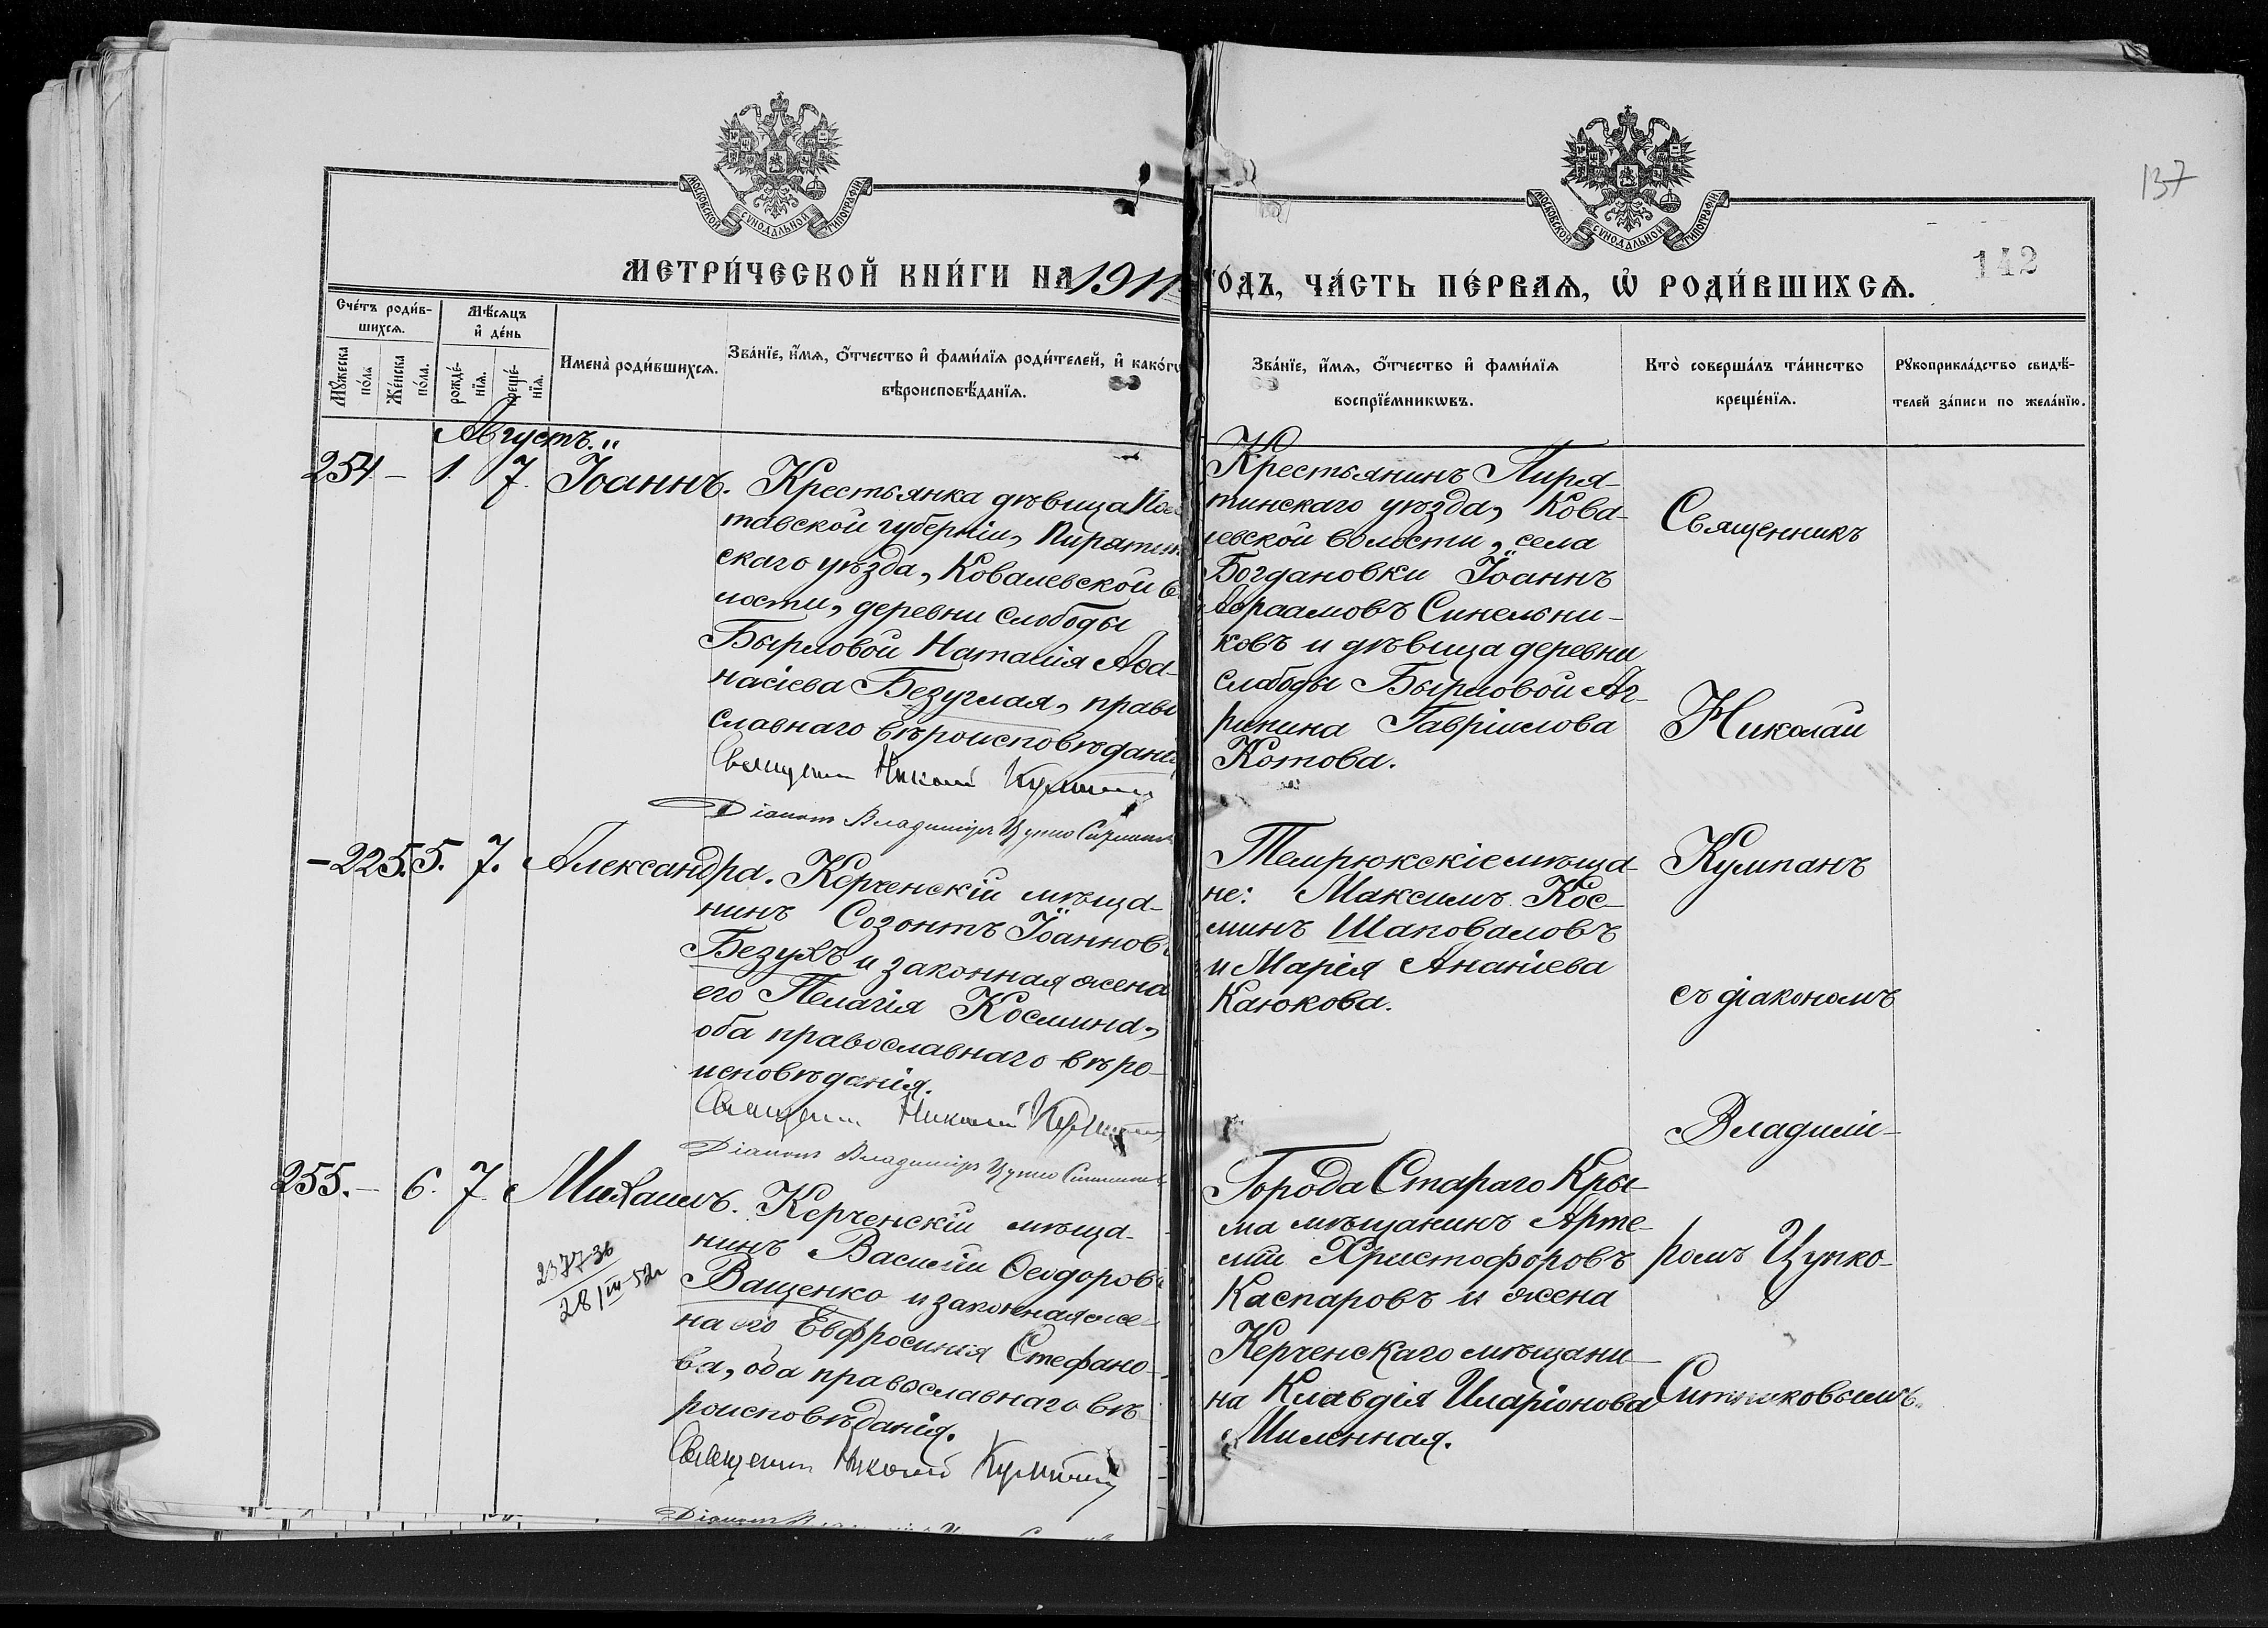 137
142
МОСКОВСКОЙ СУНОДАЛЬНОЙ ТИПОГРАФІИ
МОСКОВСКОЙ СУНОДАЛЬНОЙ ТИПОГРАФІИ
МЕТРИ́ЧЕСКОЙ КНИ́ГИ НА 1911
ГО́ДЪ, ЧА́СТЬ ПЕ́РВАѦ, Ѡ҆ РОДИ́ВШИХСѦ.
Сче́тъ роди́в-
шихсѧ.
Мѣ́сѧцъ
и҆ де́нь
Мꙋ́жеска
по́ла
Же́нска
по́ла.
рожде́-
нїѧ.
креще́-
нїѧ.
Имена̀ роди́вшихсѧ.
Зва́нїе, и҆́мѧ, ѻ҆́тчество и҆ фами́лїѧ роди́телей, и҆ како́гѡ
вѣроисповѣ́данїѧ.
Зва́нїе, и҆́мѧ, ѻ҆́тчество и҆ фами́лїѧ
воспрїе́мникѡвъ.
Кто̀ соверша́лъ та́инство
креще́нїѧ.
Рꙋкоприкла́дство свидѣ́-
телей за́писи по жела́нїю.
Августъ.
254 – 1. 7. Іоаннъ.
Крестьянка дѣвица Пол
тавской губерніи, Пирятин
скаго уѣзда, Ковалевской во
лости, деревни слободы
Бырловой Наталія Аѳа-
насіева Безуглая, право
славнаго вѣроисповѣданія
Священникъ Николай Кумпанъ
Діаконъ Владиміръ Цупко Ситниковъ
Крестьянинъ Пиря-
тинскаго уѣзда, Кова-
левской волости, села
Богдановки Іоаннъ
Авраамовъ Синельни-
ковъ и дѣвица деревни
слободы Бырловой Аг-
рипина Гавріилова
Котова.
– 225. 5. 7. Александра.
Керченскій мѣща-
нинъ Созонтъ Іоанновъ
Безухъ и законная жена
его Пелагія Космина,
оба православнаго вѣро-
исповѣданія.
Священникъ Николай Кумпанъ
Діаконъ Владиміръ Цупко Ситниковъ
Темрюкскіе мѣща-
не: Максимъ Кос-
минъ Шаповаловъ
и Марія Ананіева
Каюкова.
255. – 6. 7. Михаилъ.
237736
28/III-52г
Керченскій мѣща-
нинъ Василій Ѳеодоровъ
Ващенко и законная же-
на его Евфросинія Стефано-
ва, оба православнаго вѣ
роисповѣданія.
Священникъ Николай Кумпанъ
Діаконъ
Города Стараго Кры-
ма мѣщанинъ Арте-
мій Христофоровъ
Каспаровъ и жена
Керченскаго мѣщани-
на Клавдія Иларіонова
Миленная.
Священникъ
Николай
Кумпанъ
съ діакономъ
Владимі-
ромъ Цупко-
Ситниковымъ.